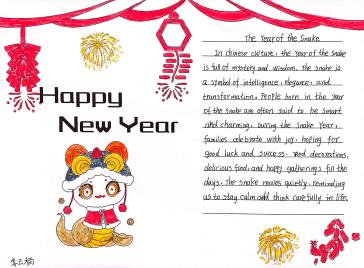 Happy
New Year
The Year of the Snake
In Chinese culture, the year of the snake
is full of mystery and wisdom. The snake is
a symbol of intelligence, elegance, and
transformation. People born in the year
of the snake are often said to be smart
and charming. During the snake year,
families celebrate with joy, hoping for
good luck and success. Red decorations,
delicious food, and happy gatherings fill the
days. The snake moves quietly, reminding
us to stay calm and think carefully in life.